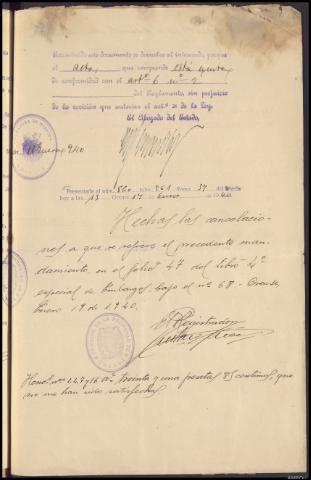 Examinado este documento se devuelve al interesado, porque
el acto que comprende está exento
de conformidad con el artº 6 nº 2
del Reglamento, sin perjuicio
de la revisión que autoriza el artº de la Ley.
El Abogado del Estado,
Enero 940
Presentado el nº 560 folio 261 Tomo 37 del Diario
hoy a las 13 Orense 17 Enero 1940
Hechas las cancelacio-
nes a que se refiere el precedente man-
damiento, en el folio 47 del libro 4º
especial de Embargos, bajo el nº 68. Orense,
Enero 19 de 1940.
El Registrador
Honos. nos 1, 2, 7 y 16 treinta y una pesetas 85 centimos, que
no me han sido satisfechas